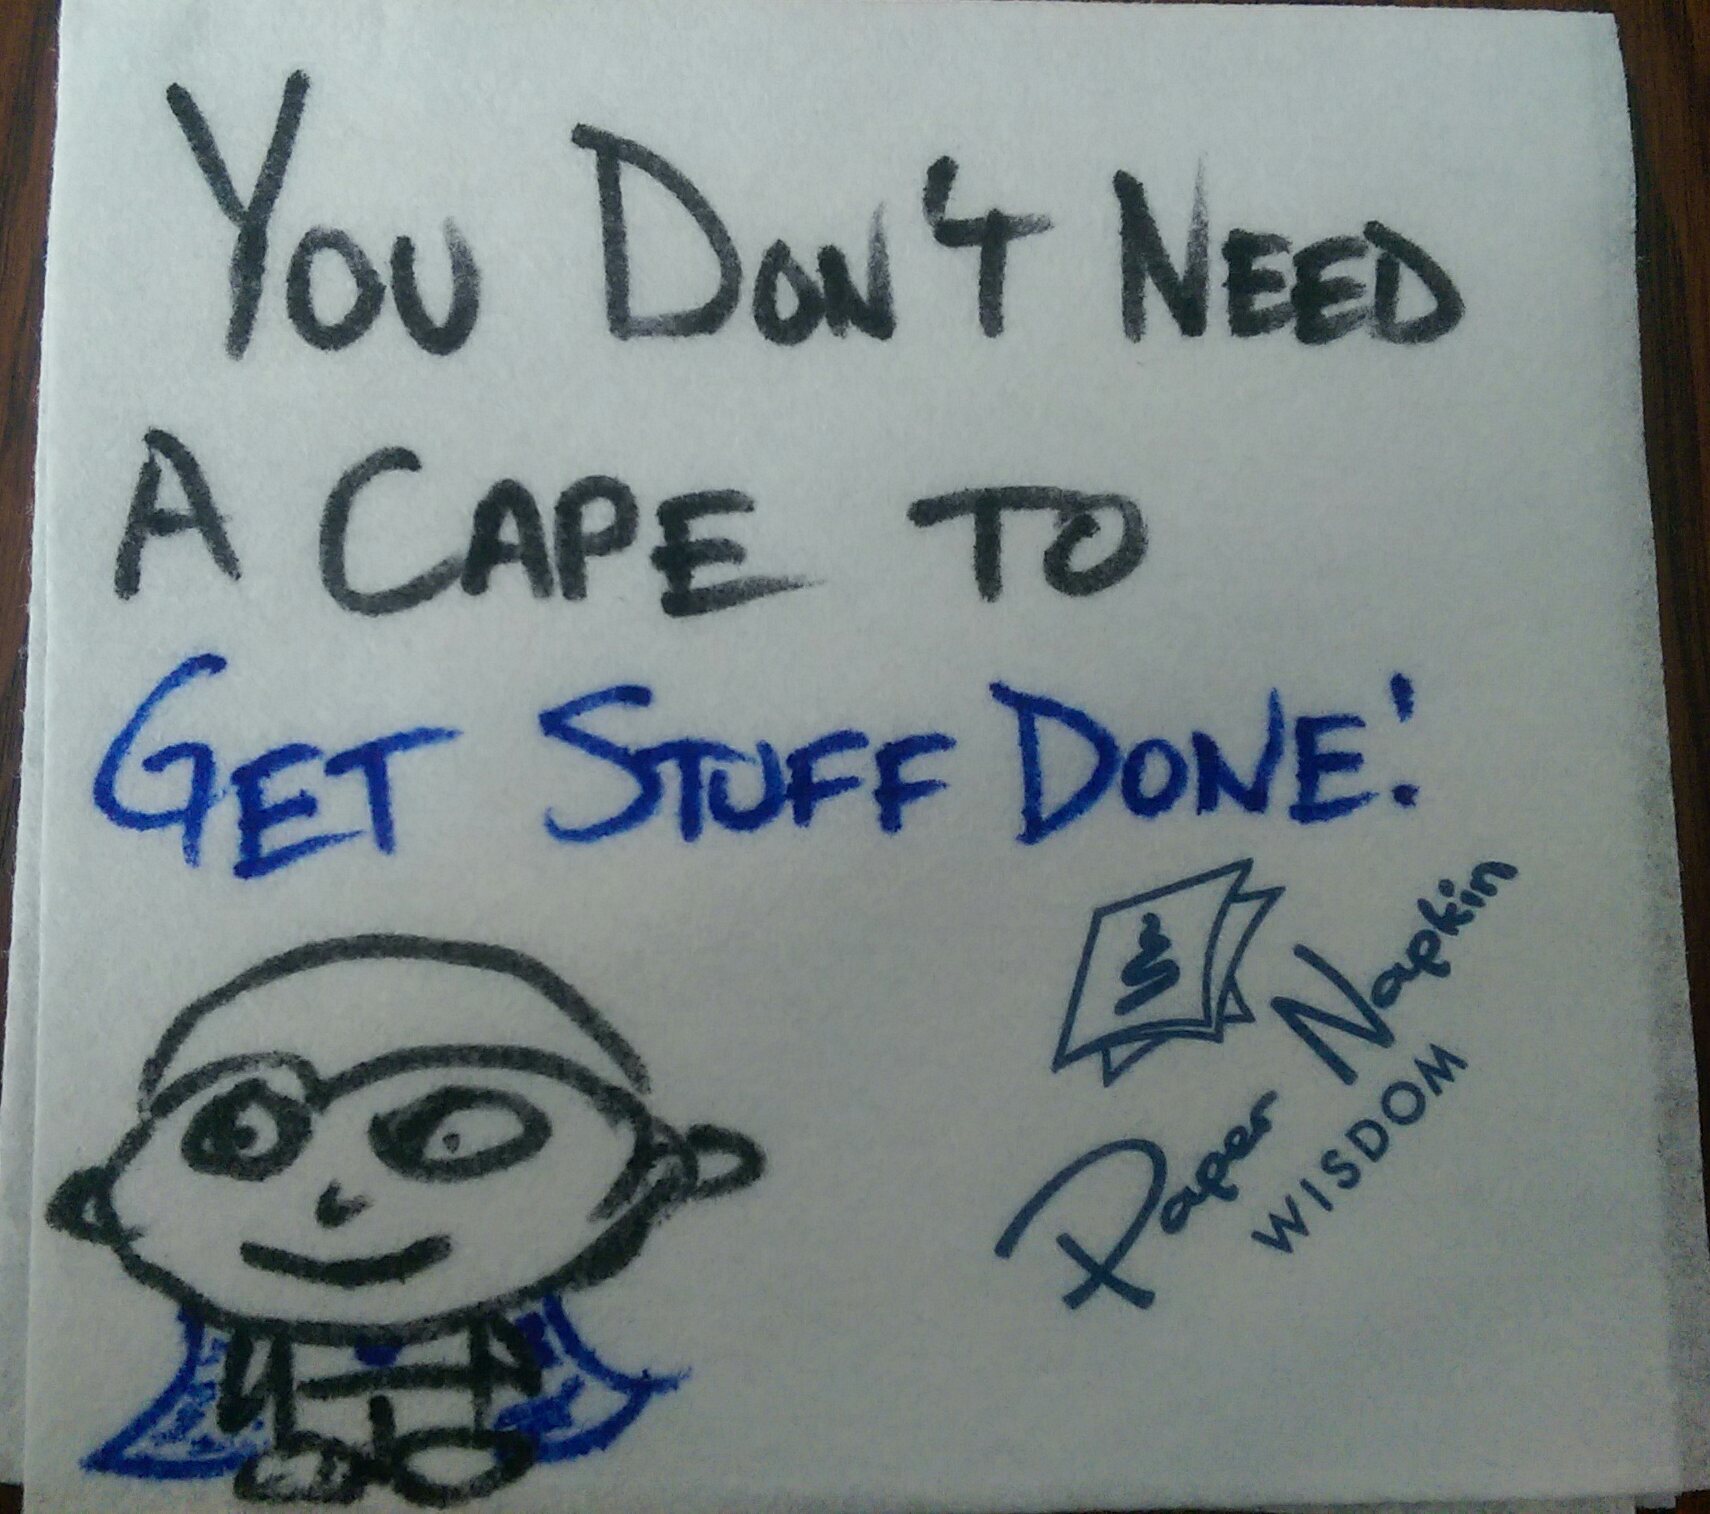 You Don't Need
A Cape to
Get Stuff Done!
Paper Napkin
WISDOM